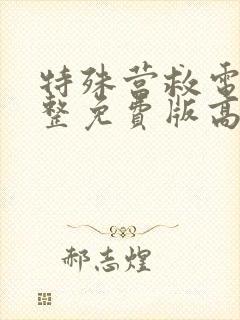 特殊营救电
整免费版高
郝志煌